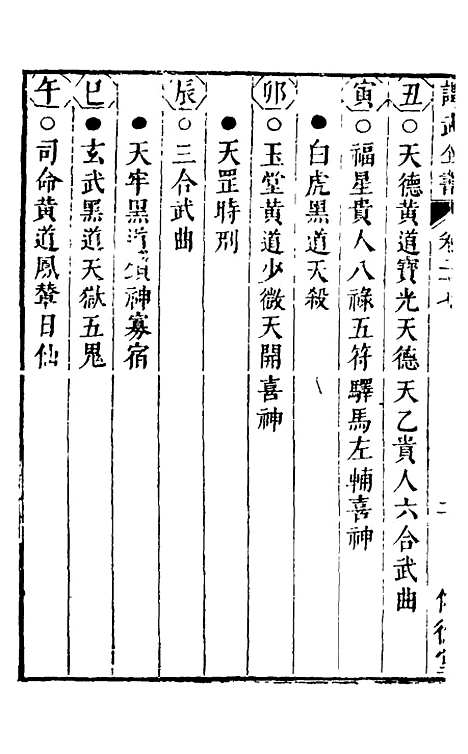 丑○天德黃道寶光天德天乙貴人六合武曲
寅○福星貴人八祿五符驛馬左輔喜神
●白虎黑道天殺
卯○玉堂黃道少微天開喜神
●天罡時刑
辰○三合武曲
●天牢黑道鎖神寡宿
巳●玄武黑道天獄五鬼
午○司命黃道鳳輦日仙